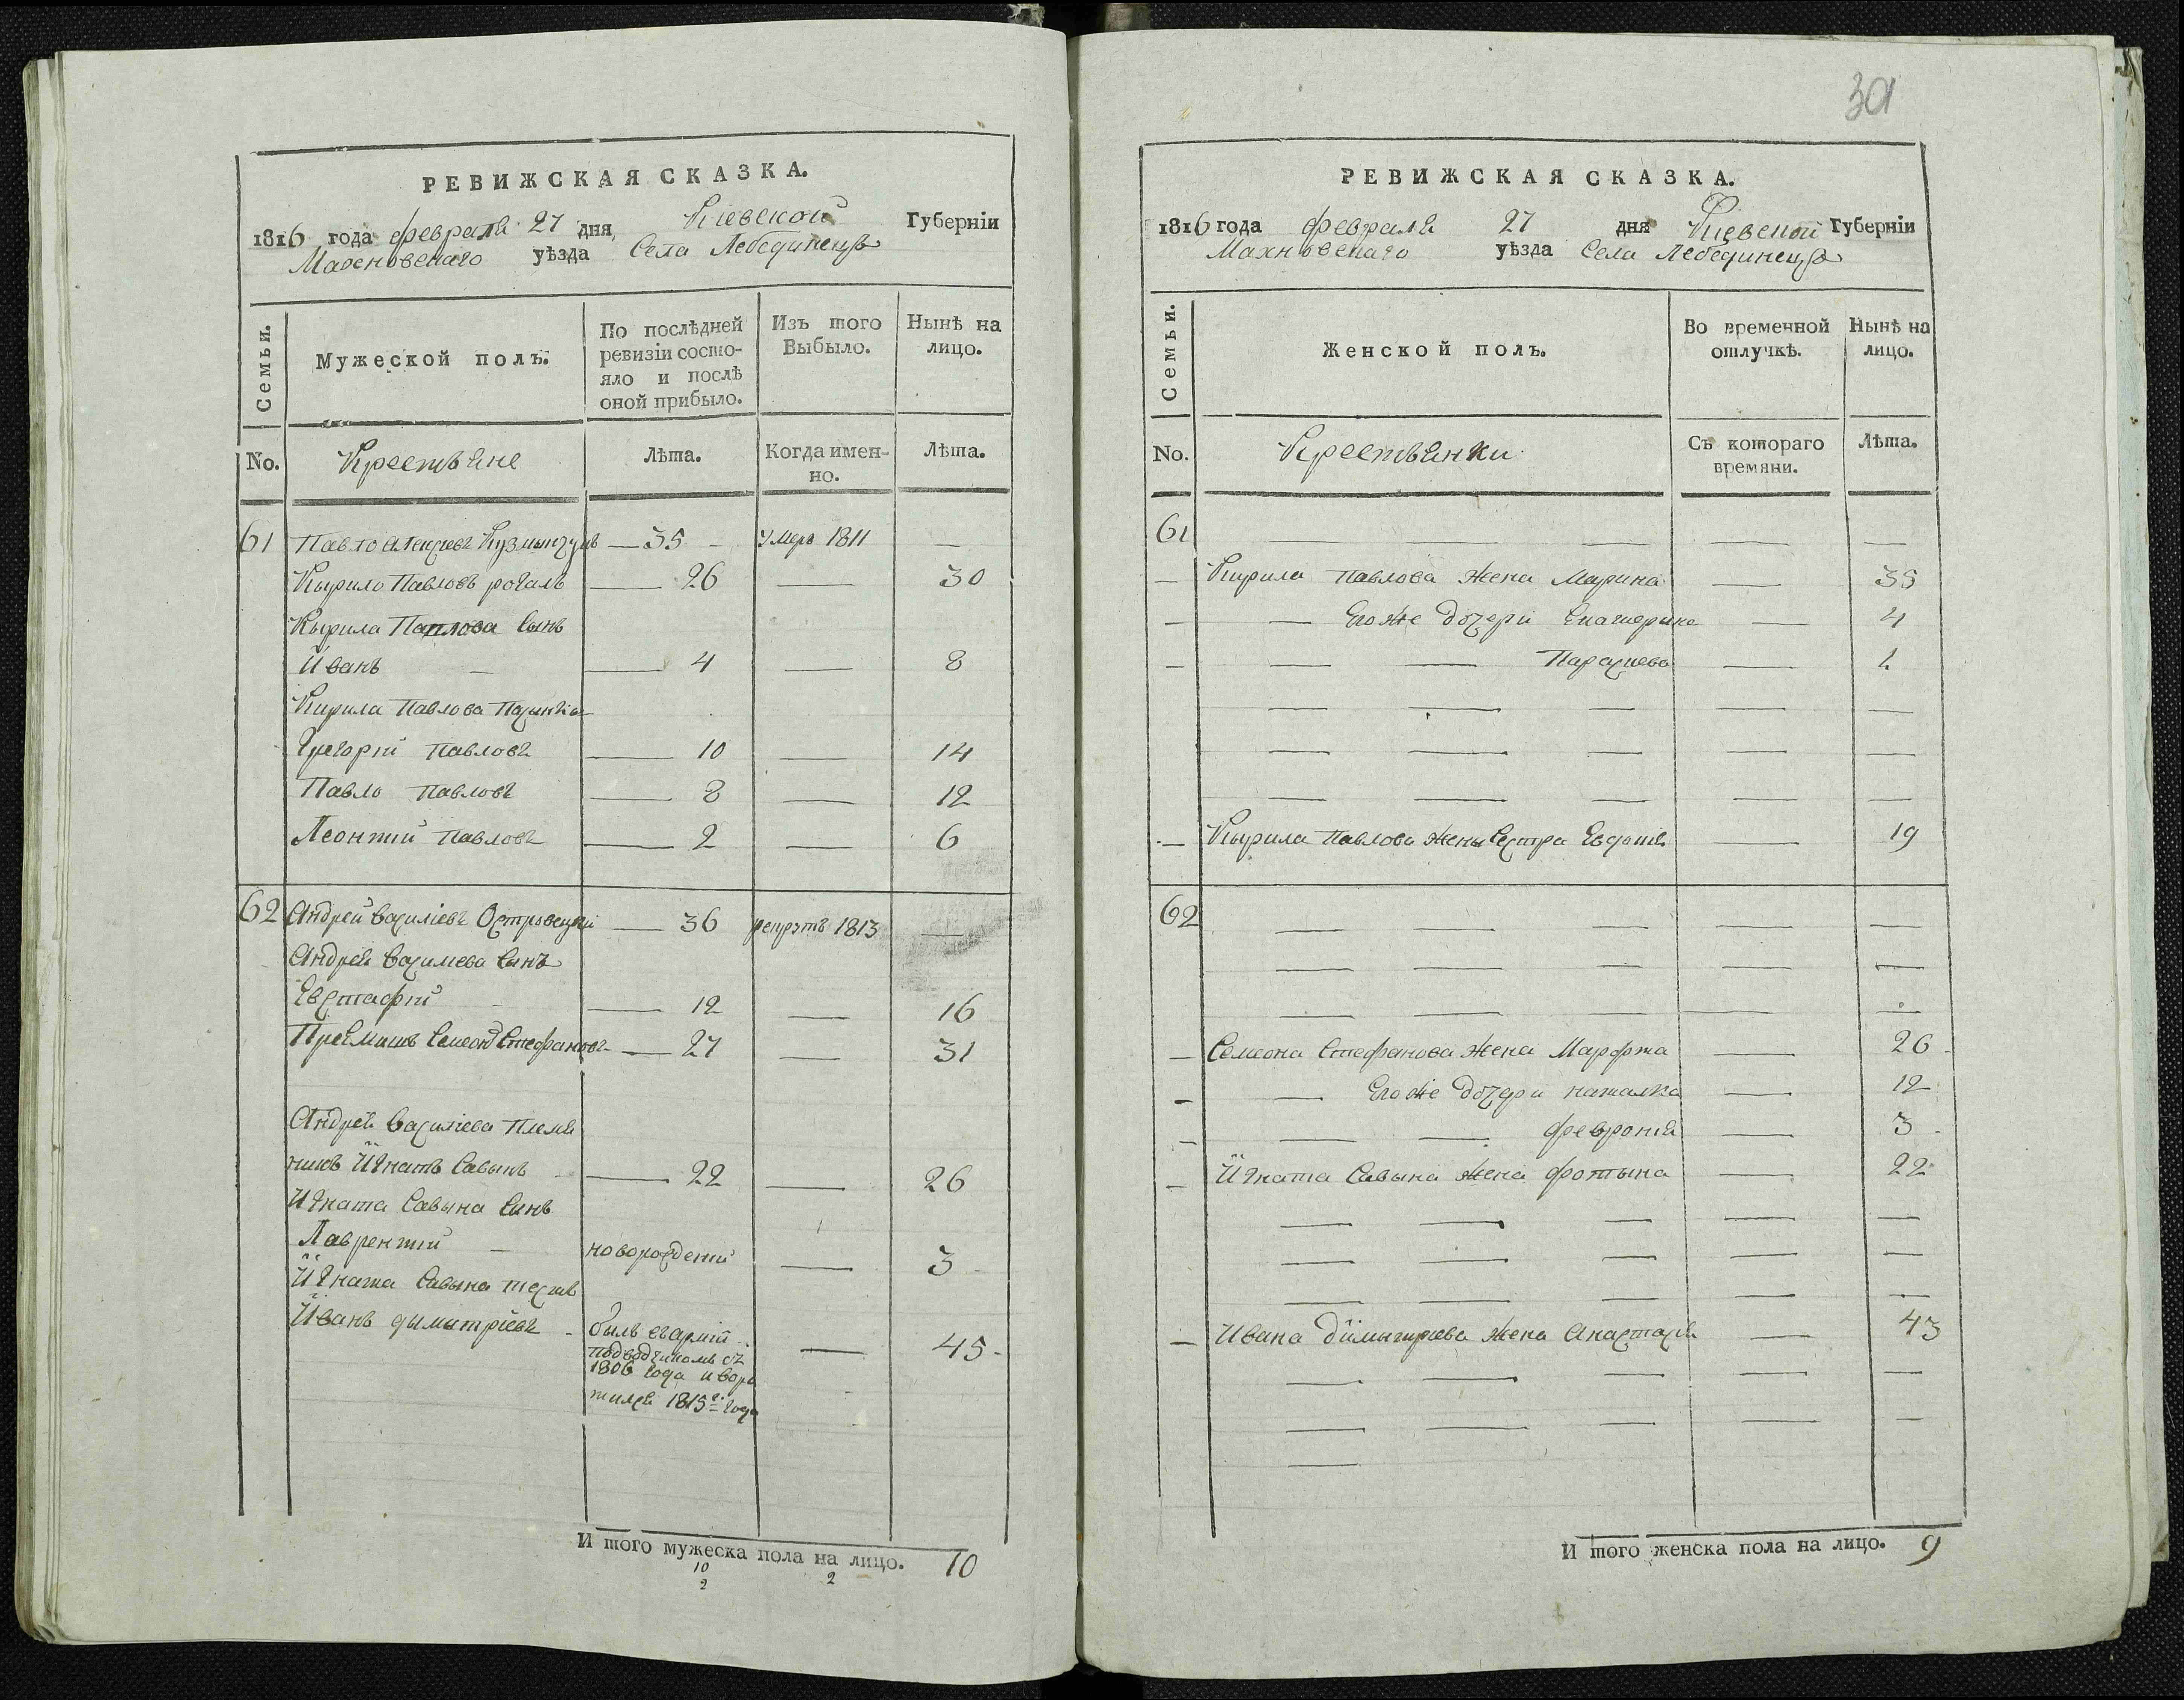 РЕВИЖСКАЯ СКАЗКА.
1816 года февраля 27 дня Кіевской Губерніи
Махновскаго уѣзда Села Лебединецъ
Семьи. Мужеской полъ. По послѣдней ревизіи состояло и послѣ оной прибыло. Изъ того Выбыло. Нынѣ на лицо.
No. Крестьяне Лѣта. Когда именно. Лѣта.
61 Павло Алексѣевъ — 35 — умеръ 1811 —
Кырило Павловъ — 26 — 30
Кырила Павлова сынъ
Йванъ — — 4 — 8
Кирила Павлова
Григорій Павловъ — 10 — 14
Павло Павловъ — 8 — 12
Леонтій Павловъ — 2 — 6
62 Андрей Василіевъ Островецкій — 36 рекрутъ 1813 —
Андрея Василиева сынъ
Евстафій — — 12 — 16
Приемишъ Семеонъ Стефановъ — 27 — 31
Андрея Василіева племя
никъ Йгнатъ Савынъ — 22 — 26
Игната Савына синъ
Лаврентій — новорожденій — 3 -
Йгната Савына тесть
Йванъ дымытріевъ - былъ варміи подводчикомъ съ 1806 года и воро тился 1815г. года — 45 -
И того мужеска пола на лицо. 10
10 2
2
301
РЕВИЖСКАЯ СКАЗКА.
1816 года февраля 27 дня Кіевской Губерніи
Махновскаго уѣзда Села Лебединецъ
Семьи. Женской полъ. Во временной отлучкѣ. Нынѣ на лицо.
No. Крестьянки Съ котораго времяни. Лѣта.
61
— Кирила Павлова жена Марина — 35
— — Егоже дочери Екатерина — 4
— — — Параскева — 1.
— Кырила Павлова жены сестра Евдокія — 19
62
— Семеона Стефанова жена Марфта — 26 -
— — Егоже дочери наталка — 12
— — — феврония — 3 -
— Йгната Савына жена фотына — 22
— Ивана Димытриева жена Анастасія — 43
И того женска пола на лицо. 9